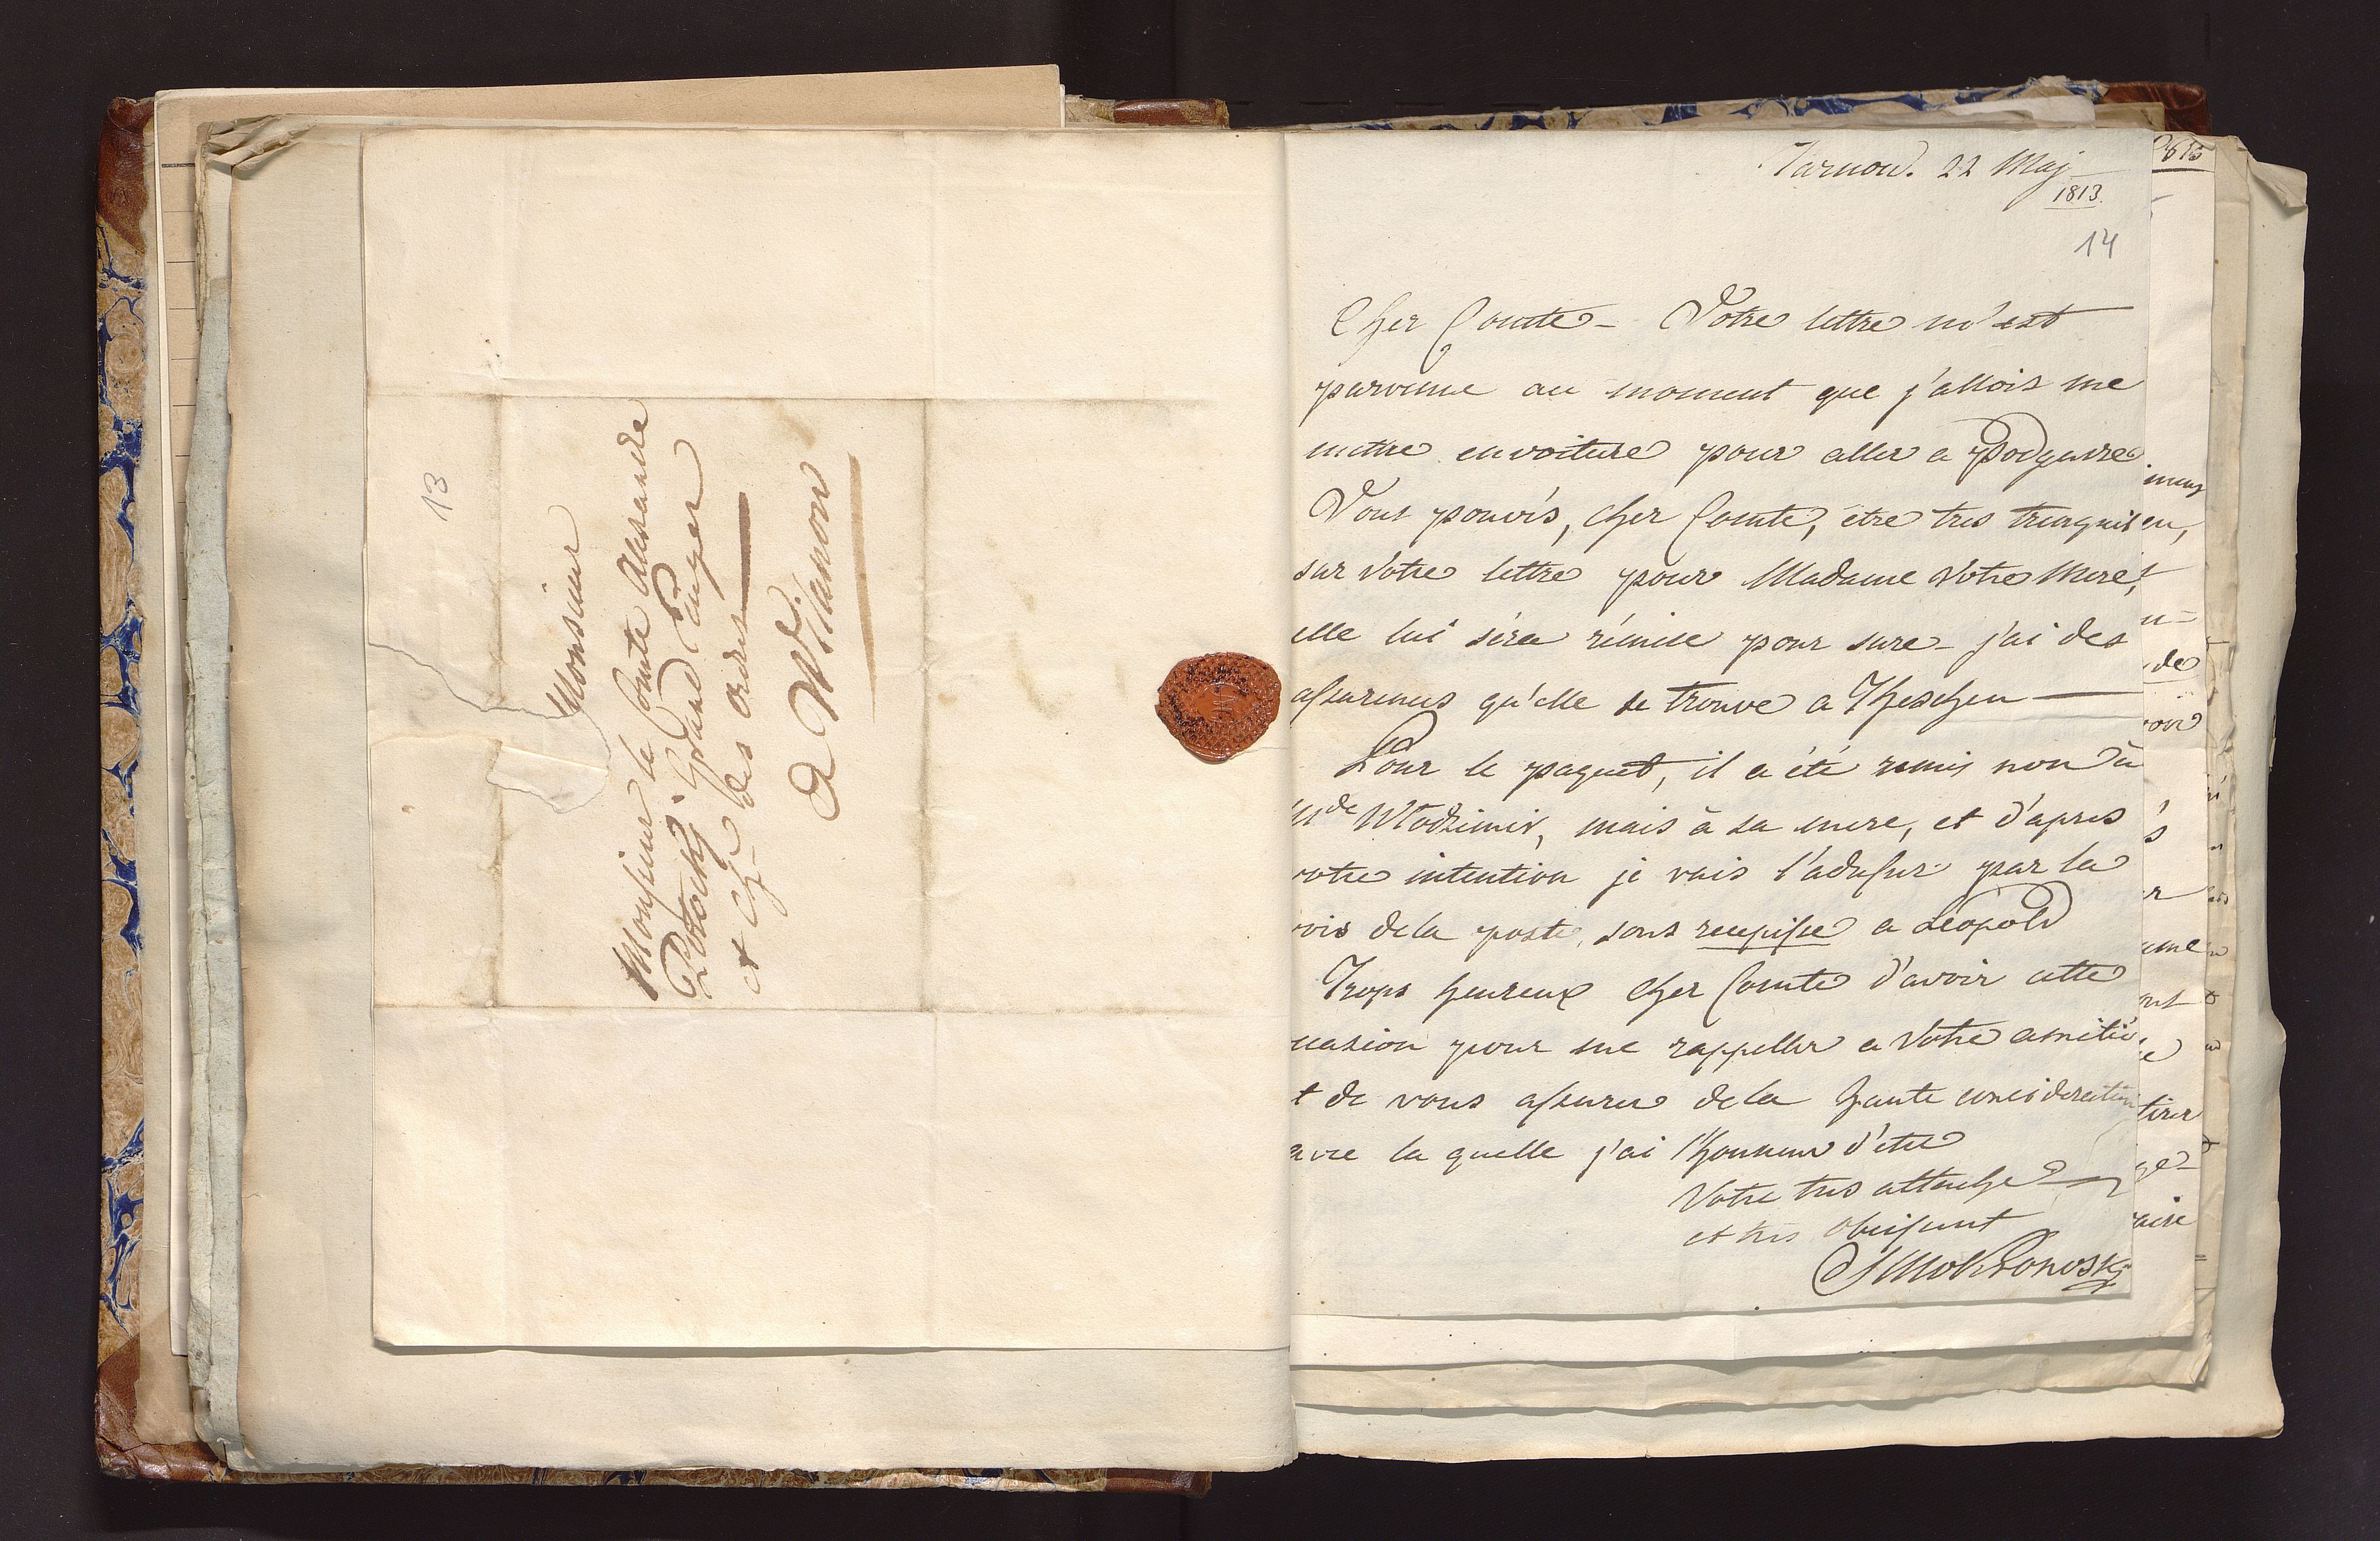 13
Monsieur
Monsieur le Comte Alexandre
Potocki. Grand Ecuyer
et Chr des ordres
a Wilanow.
Tarnow. 22 Maj
1813.
14
Cher Comte - Votre lettre m'est
parvenue au moment que j'allois me
mettre en voiture pour aller a Podgurze
Vous pouvés, cher Comte, être tres tranquil
sur Votre lettre pour Madame Votre Mere,
elle lui séra rémise pour sure - j'ai des
assurences qu'elle se trouve a Theschen
Pour le paquet, il a été remis non à
Mde Wlodzimir, mais à sa mere, et d'apres
votre intention je vais l'adresser par la
voie de la poste, sous recepisse a Leopold
Trops heureux cher Comte d'avoir cette
ocasion pour me rappeller a Votre amitié,
et de vous assurer de la haute consideration
avec la quelle j'ai l'honneur d'etre
Votre tres attaché
et tres obeissant
SMokronoski